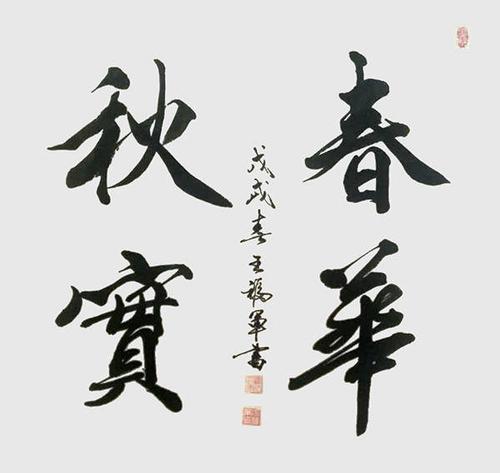 春華
秋實
戊戌春王福軍書